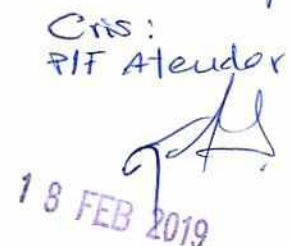 Cris:
P/F Atender
18 FEB 2019